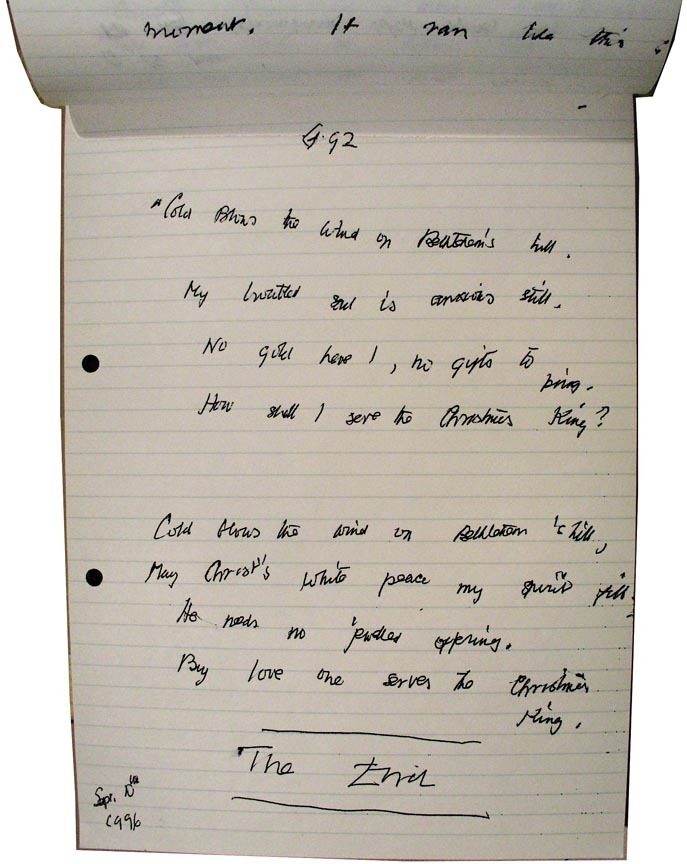 moment. It ran like this :
G.92
"Cold Blows the wind on Bethlehem's hill.
My troubled soul is anxious still.
No gold have I, no gifts to
bring.
How shall I serve the Christmas King?
Cold blows the wind on Bethlehem's hill,
May Christ's white peace my spirit fill.
He needs no jewelled offering.
By love one serves the Christmas
King.
The End
Sept.
1996